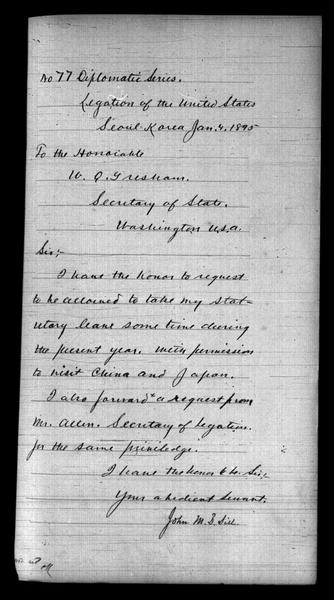 No 77 Diplomatic Series.
Legation of the United States
Seoul Korea Jan. 4, 1895
To the Honorable
W. Q. Gresham.
Secretary of State.
Washington U.S.A.
Sir:-
I have the honor to request
to be allowed to take my stat-
utory leave some time during
the present year. with permission
to visit China and Japan.
I also forward a request from
Mr. Allen. Secretary of Legation.
for the same priviledge.
I have the honor &c. Sir:-
Your obedient servant,
John M. B. Sill.